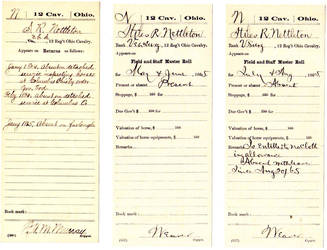 N | 12 Cav. | Ohio.
S. R. Nettleton
, 12 Reg't Ohio Cavalry.
Appears on Returns as follows:
Jany 1864, Absent on detached
service inspecting horses
at Columbus Ohio by order
Gov. Tod
Feby 1864, absent on detached
service at Columbus O.
Jany 1865, Absent on furlough
Book mark:
Copyist.
N | 12 Cav. | Ohio.
Stiles R. Nettleton
, 12 Reg't Ohio Cavalry.
Appears on
Field and Staff Muster Roll
for May & June, 1865
Present or absent Present
Stoppage, $ 100 for
Due Gov't $ 100 for
Valuation of horse, $ 100
Valuation of horse equipments, $ 100
Remarks:
Book mark:
Weaver
Copyist.
N | 12 Cav. | Ohio.
Stiles R. Nettleton
, 12 Reg't Ohio Cavalry.
Appears on
Field and Staff Muster Roll
for July & Aug, 1865
Present or absent Absent
Stoppage, $ 100 for
Due Gov't $ 100 for
Valuation of horse, $ 100
Valuation of horse equipments, $ 100
Remarks: Is entitled to no cloth
ing allowance
Absent with leave
since Aug 20/65
Book mark:
Weaver
Copyist.